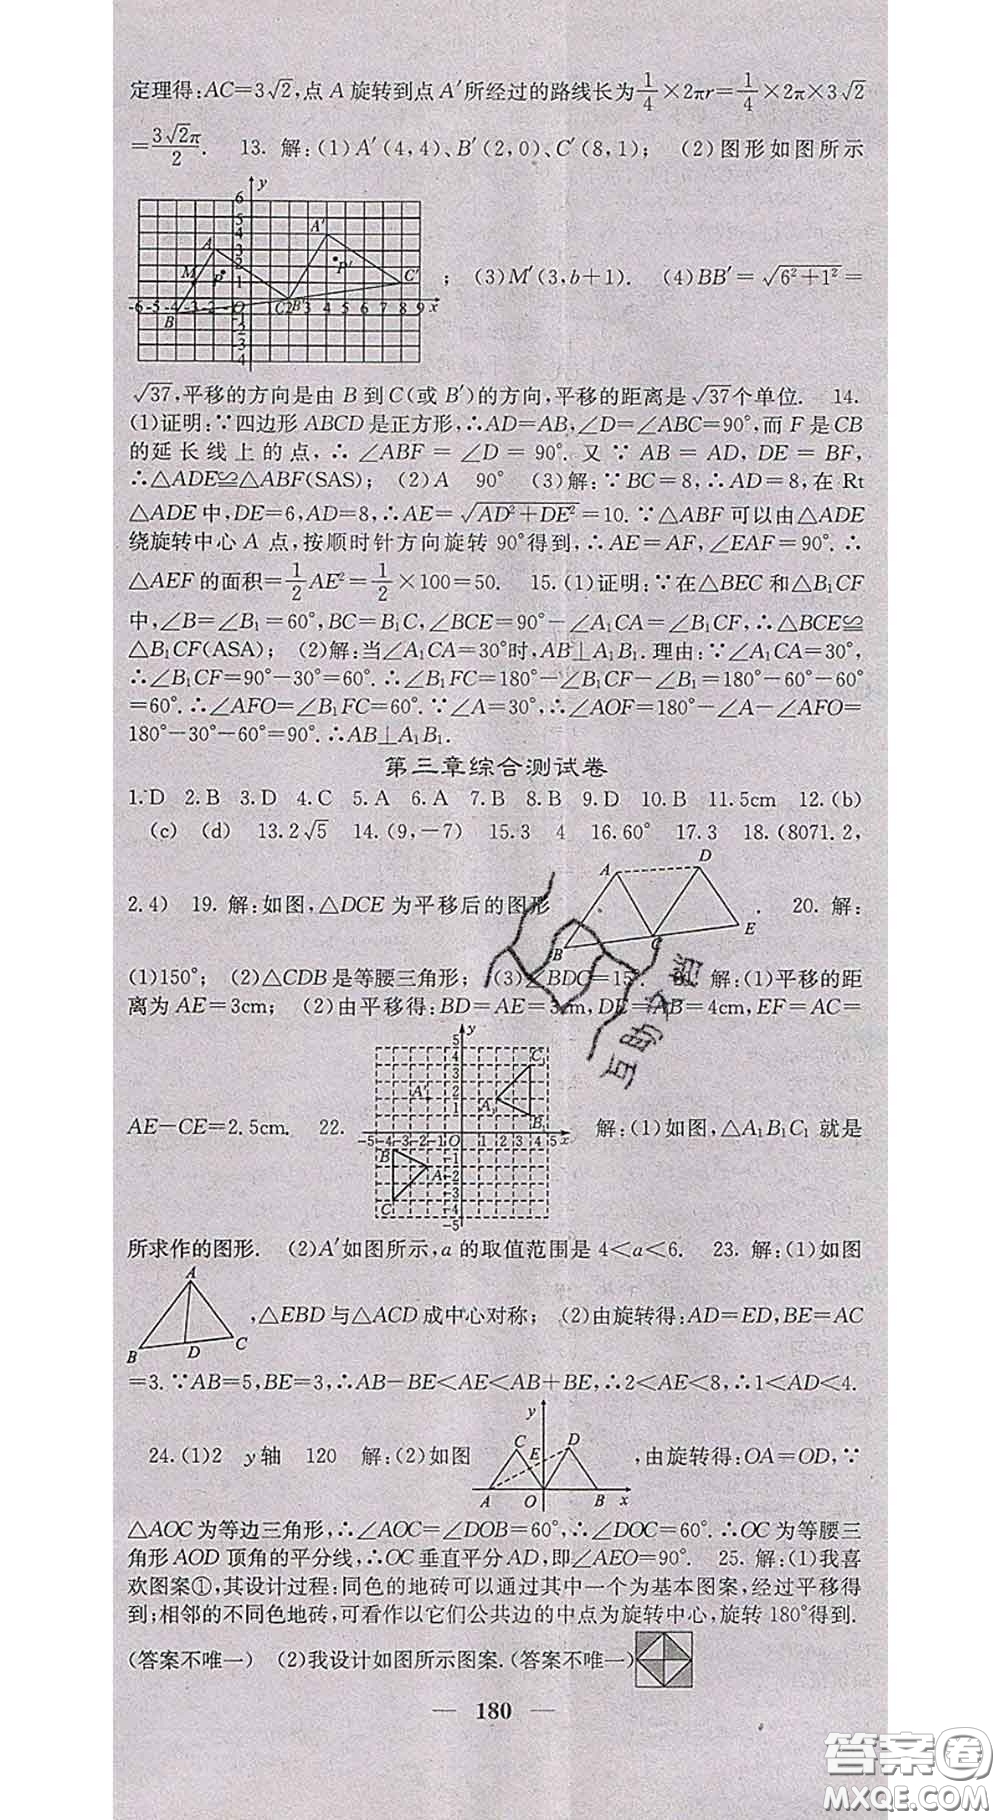 定理得:AC=3√2,点 A 旋转到点 A′所经过的路线长为1/4×2πr=1/4×2π×3√2
=3√2π/2. 13. 解:(1)A′(4,4)、B′(2,0)、C′(8,1); (2)图形如图所示
; (3)M′(3,b+1). (4)BB′=√(6²+1²)=
√37,平移的方向是由 B 到C(或 B′)的方向,平移的距离是√37个单位. 14.
(1)证明:∵四边形 ABCD 是正方形,∴AD=AB,∠D=∠ABC=90°,而 F 是CB
的延长线上的点,∴∠ABF=∠D=90°.又∵AB=AD,DE=BF,
∴△ADE≌△ABF(SAS); (2)A 90° (3)解:∵BC=8,∴AD=8,在 Rt
△ADE 中,DE=6,AD=8,∴AE=√(AD²+DE²)=10.∵△ABF 可以由△ADE
绕旋转中心 A 点,按顺时针方向旋转 90°得到,∴AE=AF,∠EAF=90°.∴
△AEF 的面积=1/2AE²=1/2×100=50. 15.(1)证明:∵在△BEC 和△B₁CF
中,∠B=∠B₁=60°,BC=B₁C,∠BCE=90°-∠A₁CA=∠B₁CF,∴△BCE≌
△B₁CF(ASA); (2)解:当∠A₁CA=30°时,AB⊥A₁B₁.理由:∵∠A₁CA=30°,
∴∠B₁CF=90°-30°=60°.∴∠B₁FC=180°-∠B₁CF-∠B₁=180°-60°-60°
=60°.∴∠AFO=∠B₁FC=60°.∵∠A=30°,∴∠AOF=180°-∠A-∠AFO=
180°-30°-60°=90°.∴AB⊥A₁B₁.
第三章综合测试卷
1.D 2.B 3.D 4.C 5.A 6.A 7.B 8.B 9.D 10.B 11.5cm 12.(b)
(c) (d) 13.2√5 14.(9,-7) 15.3 4 16.60° 17.3 18.(8071.2,
2.4) 19. 解:如图,△DCE 为平移后的图形
. 20. 解:
(1)150°; (2)△CDB 是等腰三角形; (3)∠BDC=15°. 解:(1)平移的距
离为 AE=3cm; (2)由平移得:BD=AE=3cm,DE=AB=4cm,EF=AC=
AE-CE=2.5cm. 22.
解:(1)如图,△A₁B₁C₁ 就是
所求作的图形. (2)A′如图所示,a 的取值范围是 4<a<6. 23. 解:(1)如图
,△EBD 与△ACD 成中心对称; (2)由旋转得:AD=ED,BE=AC
=3.∵AB=5,BE=3,∴AB-BE<AE<AB+BE,∴2<AE<8,∴1<AD<4.
24.(1)2 y轴 120 解:(2)如图
,由旋转得:OA=OD,∵
△AOC 为等边三角形,∴∠AOC=∠DOB=60°,∴∠DOC=60°.∴OC 为等腰三
角形 AOD 顶角的平分线,∴OC 垂直平分 AD,即∠AEO=90°. 25. 解:(1)我喜
欢图案①,其设计过程:同色的地砖可以通过其中一个为基本图案,经过平移得
到;相邻的不同色地砖,可看作以它们公共边的中点为旋转中心,旋转 180°得到.
(答案不唯一) (2)我设计如图所示图案.(答案不唯一)
— 180 —
互助文档
答案卷
MXQE.COM